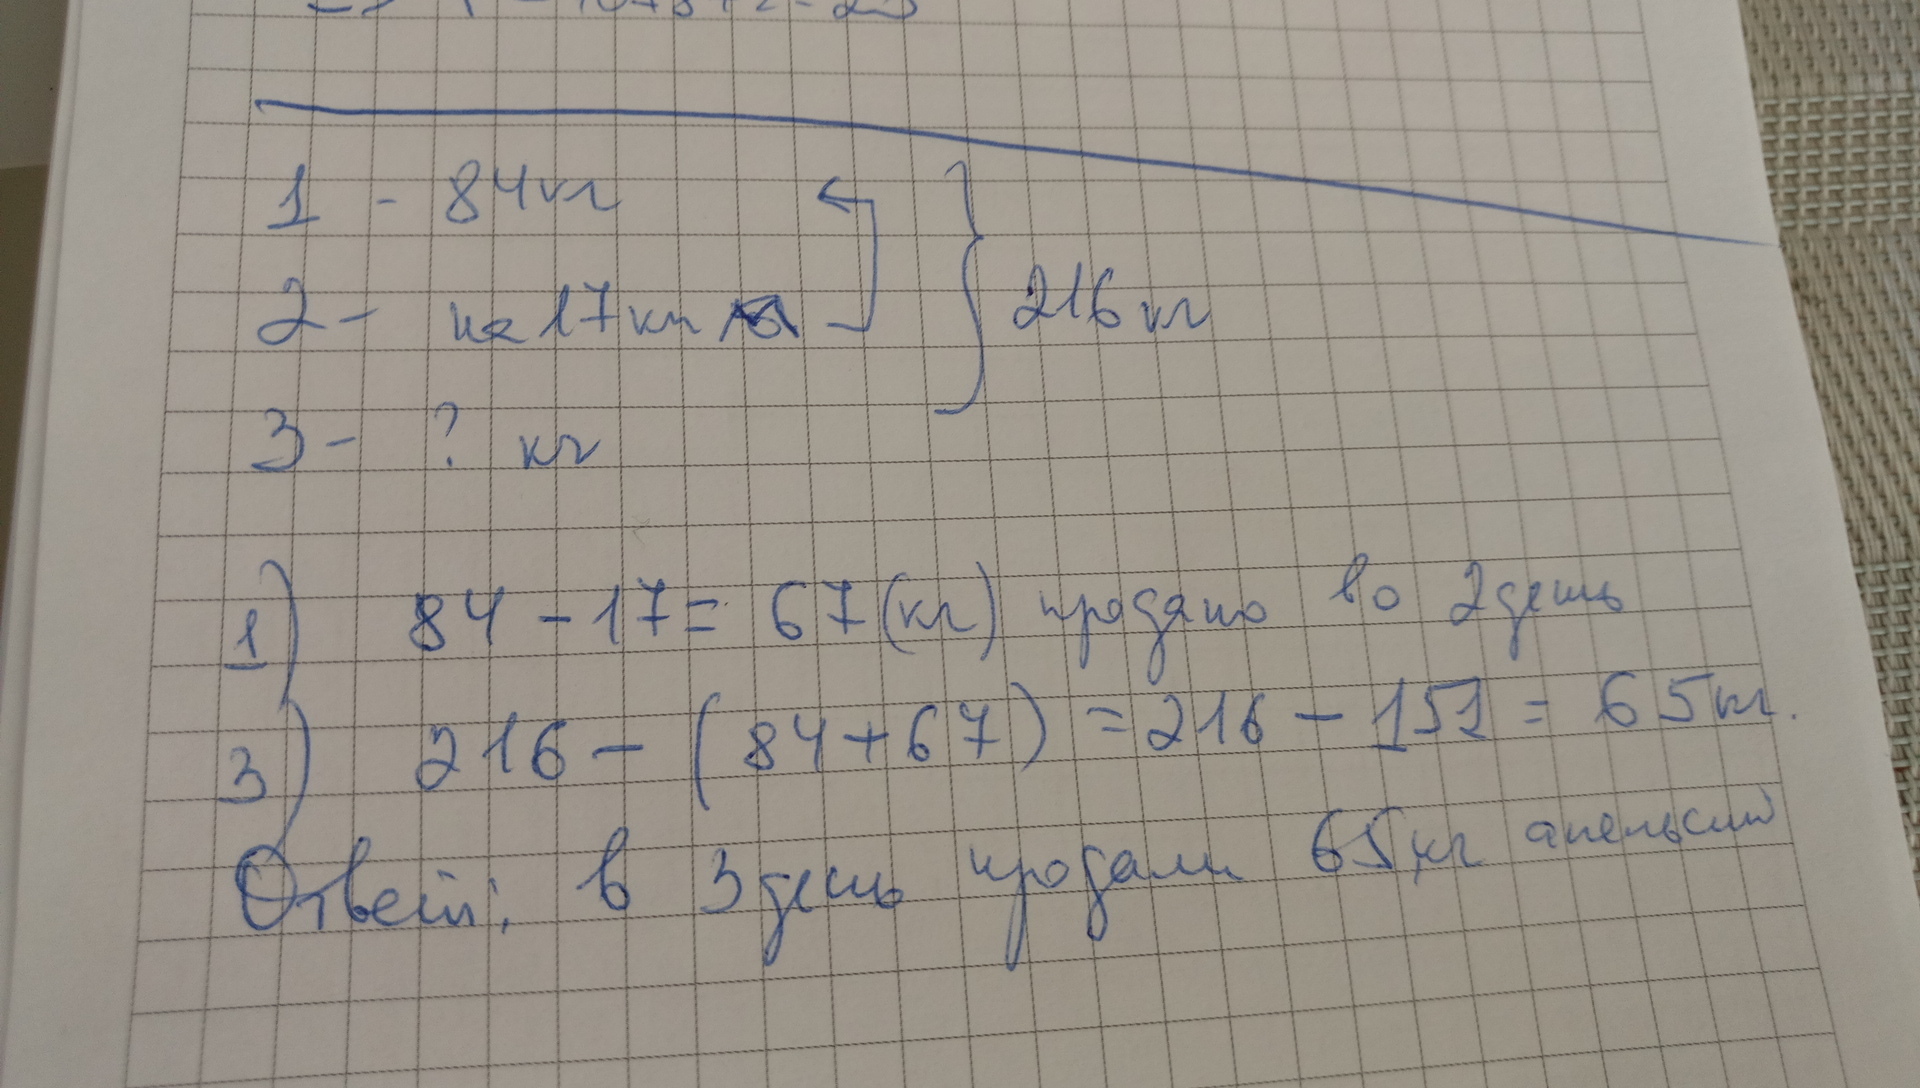 1 - 84кг
2 - на 17 кг
216 кг
3 - ? кг
1) 84 - 17 = 67 (кг) продано во 2 день
3) 216 - (84 + 67) = 216 - 151 = 65 кг.
Ответ: в 3 день продали 65 кг апельсин